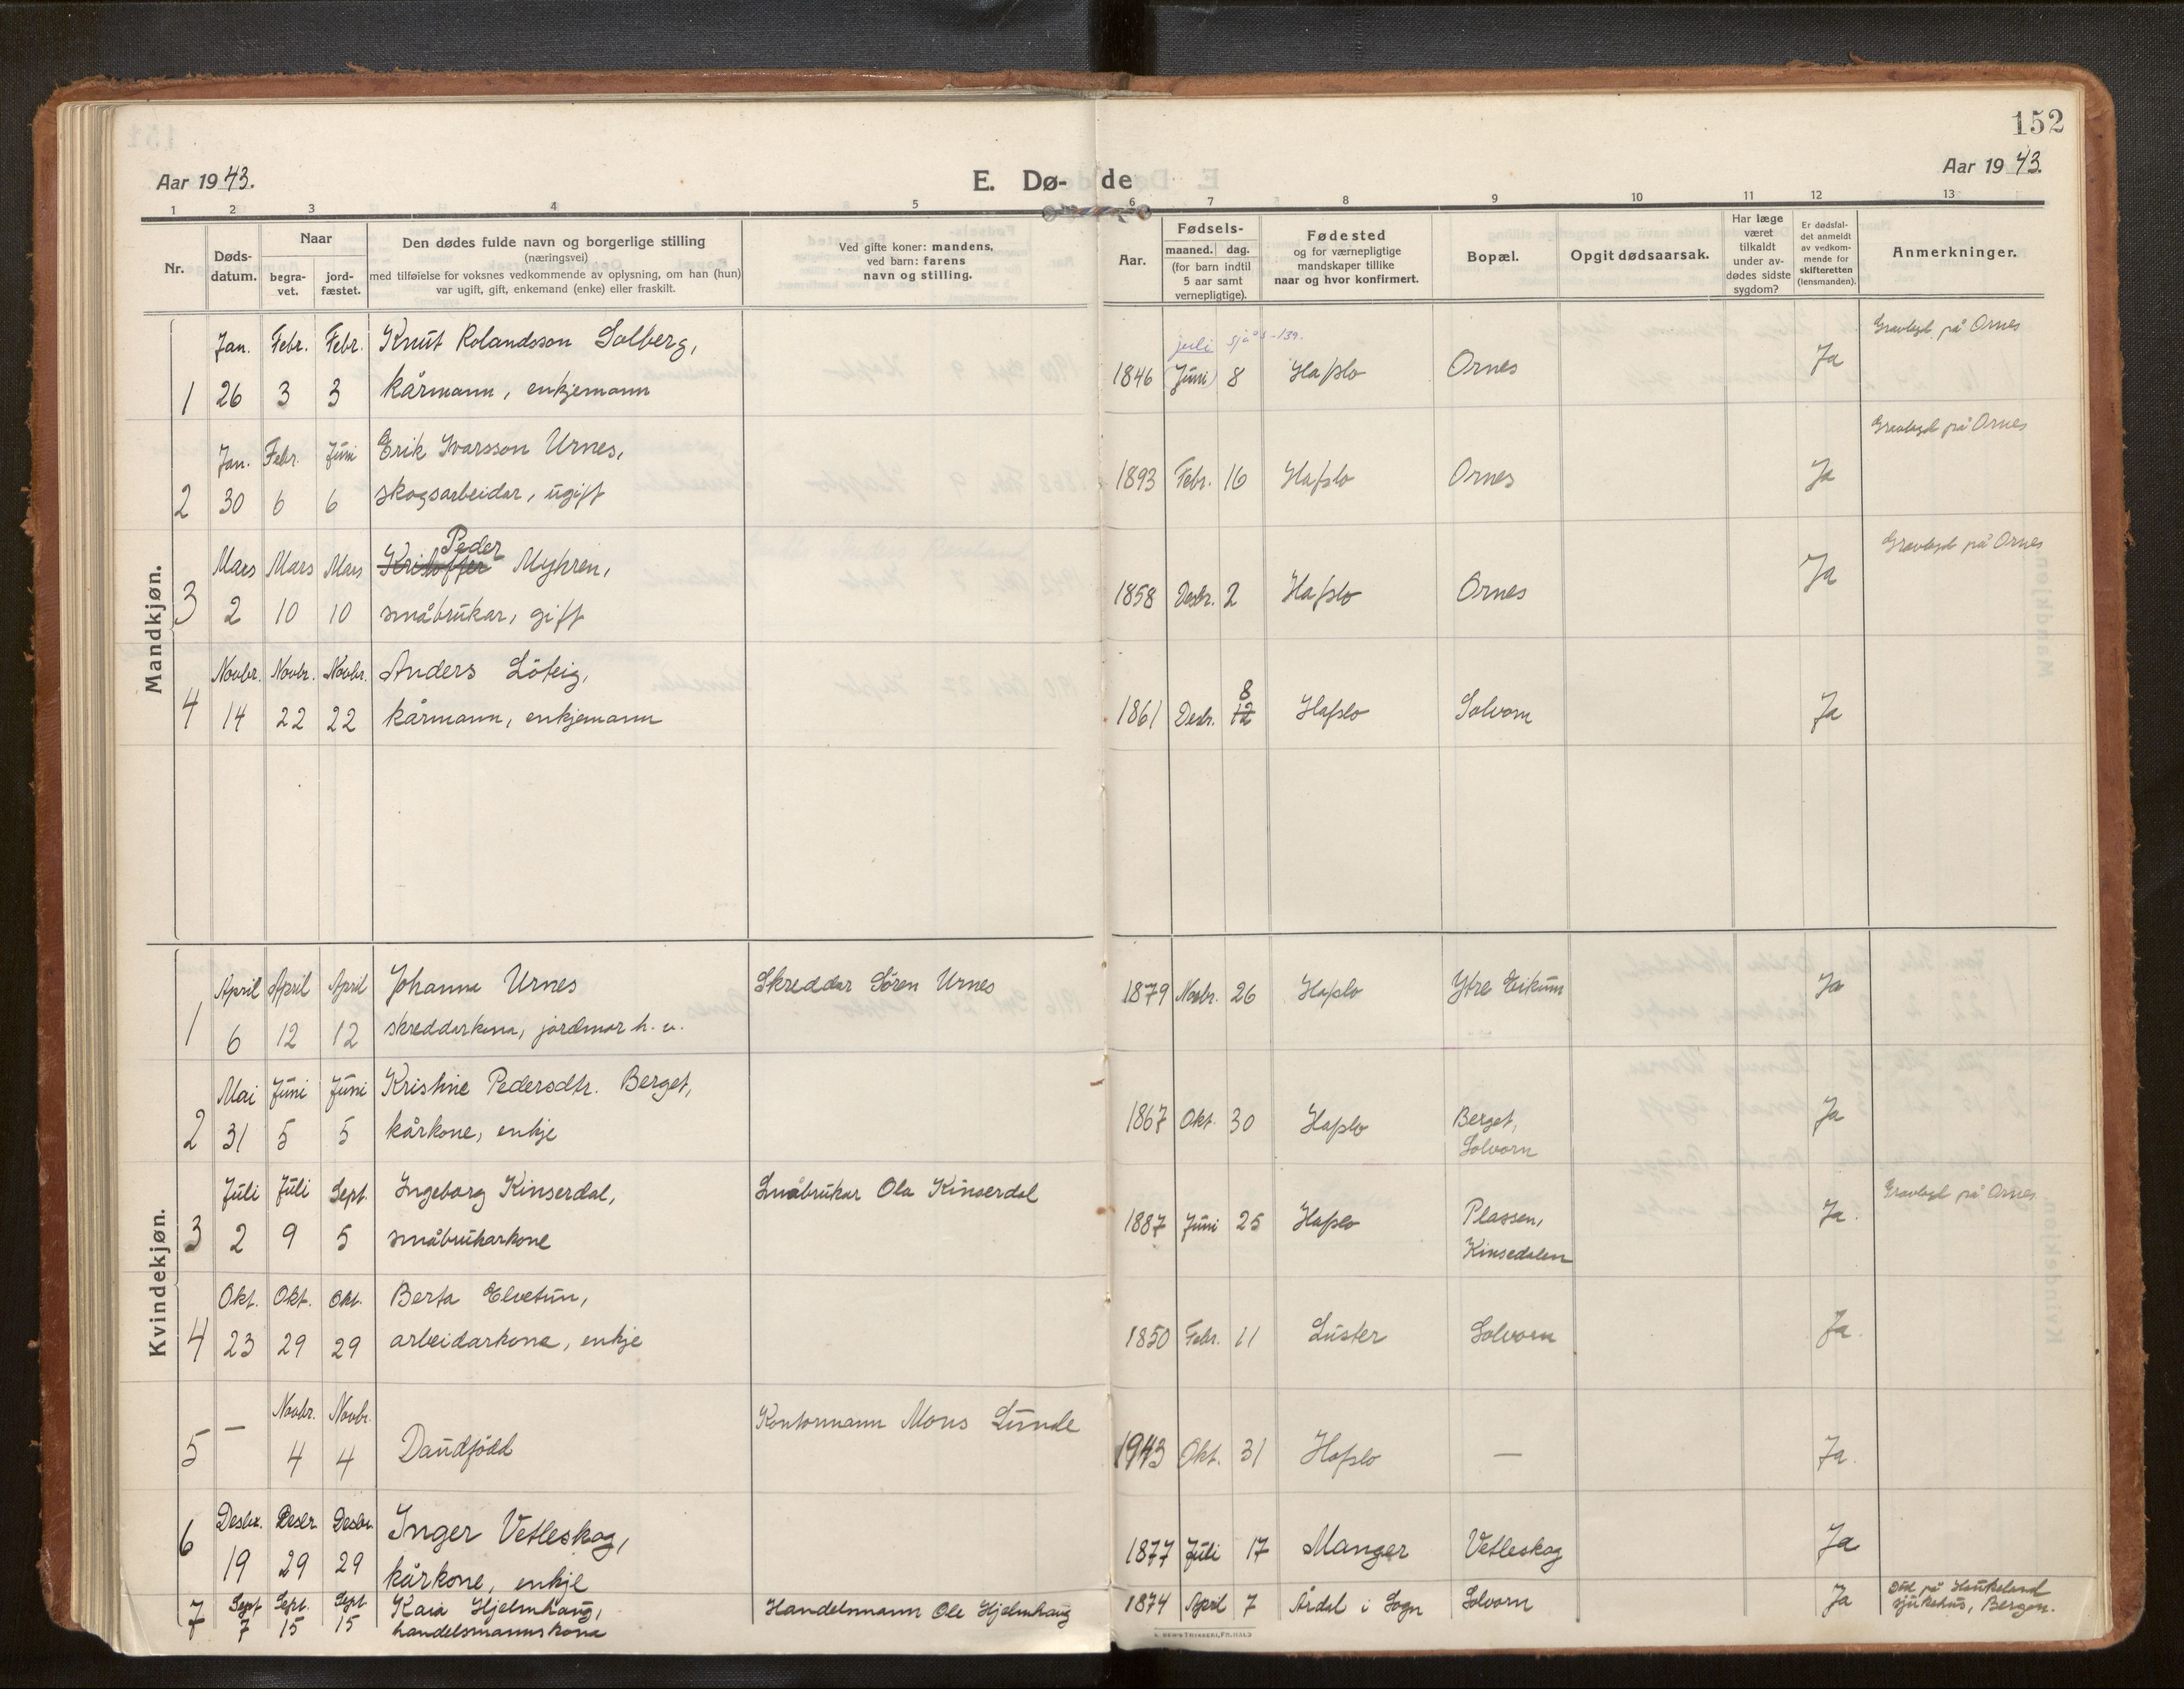 152
Aar 1943.
E. Dø- de
Aar 1943.
1 2 3 4 5 6 7 8 9 10 11 12 13
Nr.
Døds-
datum.
Naar
begra-
vet.
jord-
fæstet.
Den dødes fulde navn og borgerlige stilling
(næringsvei)
med tilføielse for voksnes vedkommende av oplysning, om han (hun)
var ugift, gift, enkemand (enke) eller fraskilt.
Ved gifte koner: mandens,
ved barn: farens
navn og stilling.
Aar.
Fødsels-
maaned. dag.
(for barn indtil
5 aar samt
vernepligtige).
Fødested
og for værnepligtige
mandskaper tillike
naar og hvor konfirmert.
Bopæl.
Opgit dødsaarsak.
Har læge
været
tilkaldt
under av-
dødes sidste
sygdom?
Er dødsfal-
det anmeldt
av vedkom-
mende for
skifteretten
(lensmanden).
Anmerkninger.
Mandkjøn.
Jan. Febr. Febr. Knut Rolandsson Solberg, juli sjå s-139. Gravlagd på Ornes
1 26 3 3 kårmann, enkjemann 1846 (Juni) 8 Hafslo Ornes Ja
Jan. Febr. Juni Erik Ivarsson Urnes, Gravlagd på Ornes
2 30 6 6 skogsarbeidar, ugift 1893 Febr. 16 Hafslo Ornes Ja
Peder
Mars Mars Mars Kristoffer Myhren, Gravlagd på Ornes
3 2 10 10 småbrukar, gift 1858 Desbr. 2 Hafslo Ornes Ja
Novbr. Novbr. Novbr. Anders Löteig, 8
4 14 22 22 kårmann, enkjemann 1861 Desbr. 12 Hafslo Solvorn Ja
Kvindekjøn.
April April April Johanna Urnes Skreddar Sören Urnes
1 6 12 12 skreddarkona, jordmor h. v. 1879 Novbr. 26 Hafslo Ytre Eikum Ja
Mai Juni Juni Kristine Pedersdtr. Berget,
2 31 5 5 kårkone, enkje 1867 Okt. 30 Hafslo Berget,
Solvorn Ja
Juli Juli Sept. Ingeborg Kinserdal, Småbrukar Ola Kinserdal Gravlagd på Ornes
3 2 9 5 småbrukarkone 1887 Juni 25 Hafslo Plassen,
Kinsedalen Ja.
Okt. Okt. Okt. Berta Elvetun,
4 23 29 29 arbeidarkone, enkje 1850 Febr. 11 Luster Solvorn Ja.
— Novbr. Novbr. Kontormann Mons Lunde
5 4 4 Daudfödd 1943 Okt. 31 Hafslo — Ja.
Desbr. Desbr Desbr. Inger Vetleskog,
6 19 29 29 kårkone, enkje 1877 Juli 17 Manger Vetleskog Ja
Sept Sept. Sept Kaia Hjelmhaug, Handelsmann Ole Hjelmhaug 1874 April 7 Årdal i Sogn Solvorn Ja Död på Haukeland
7 7 15 15 handelsmannskona sjukehus, Bergen.